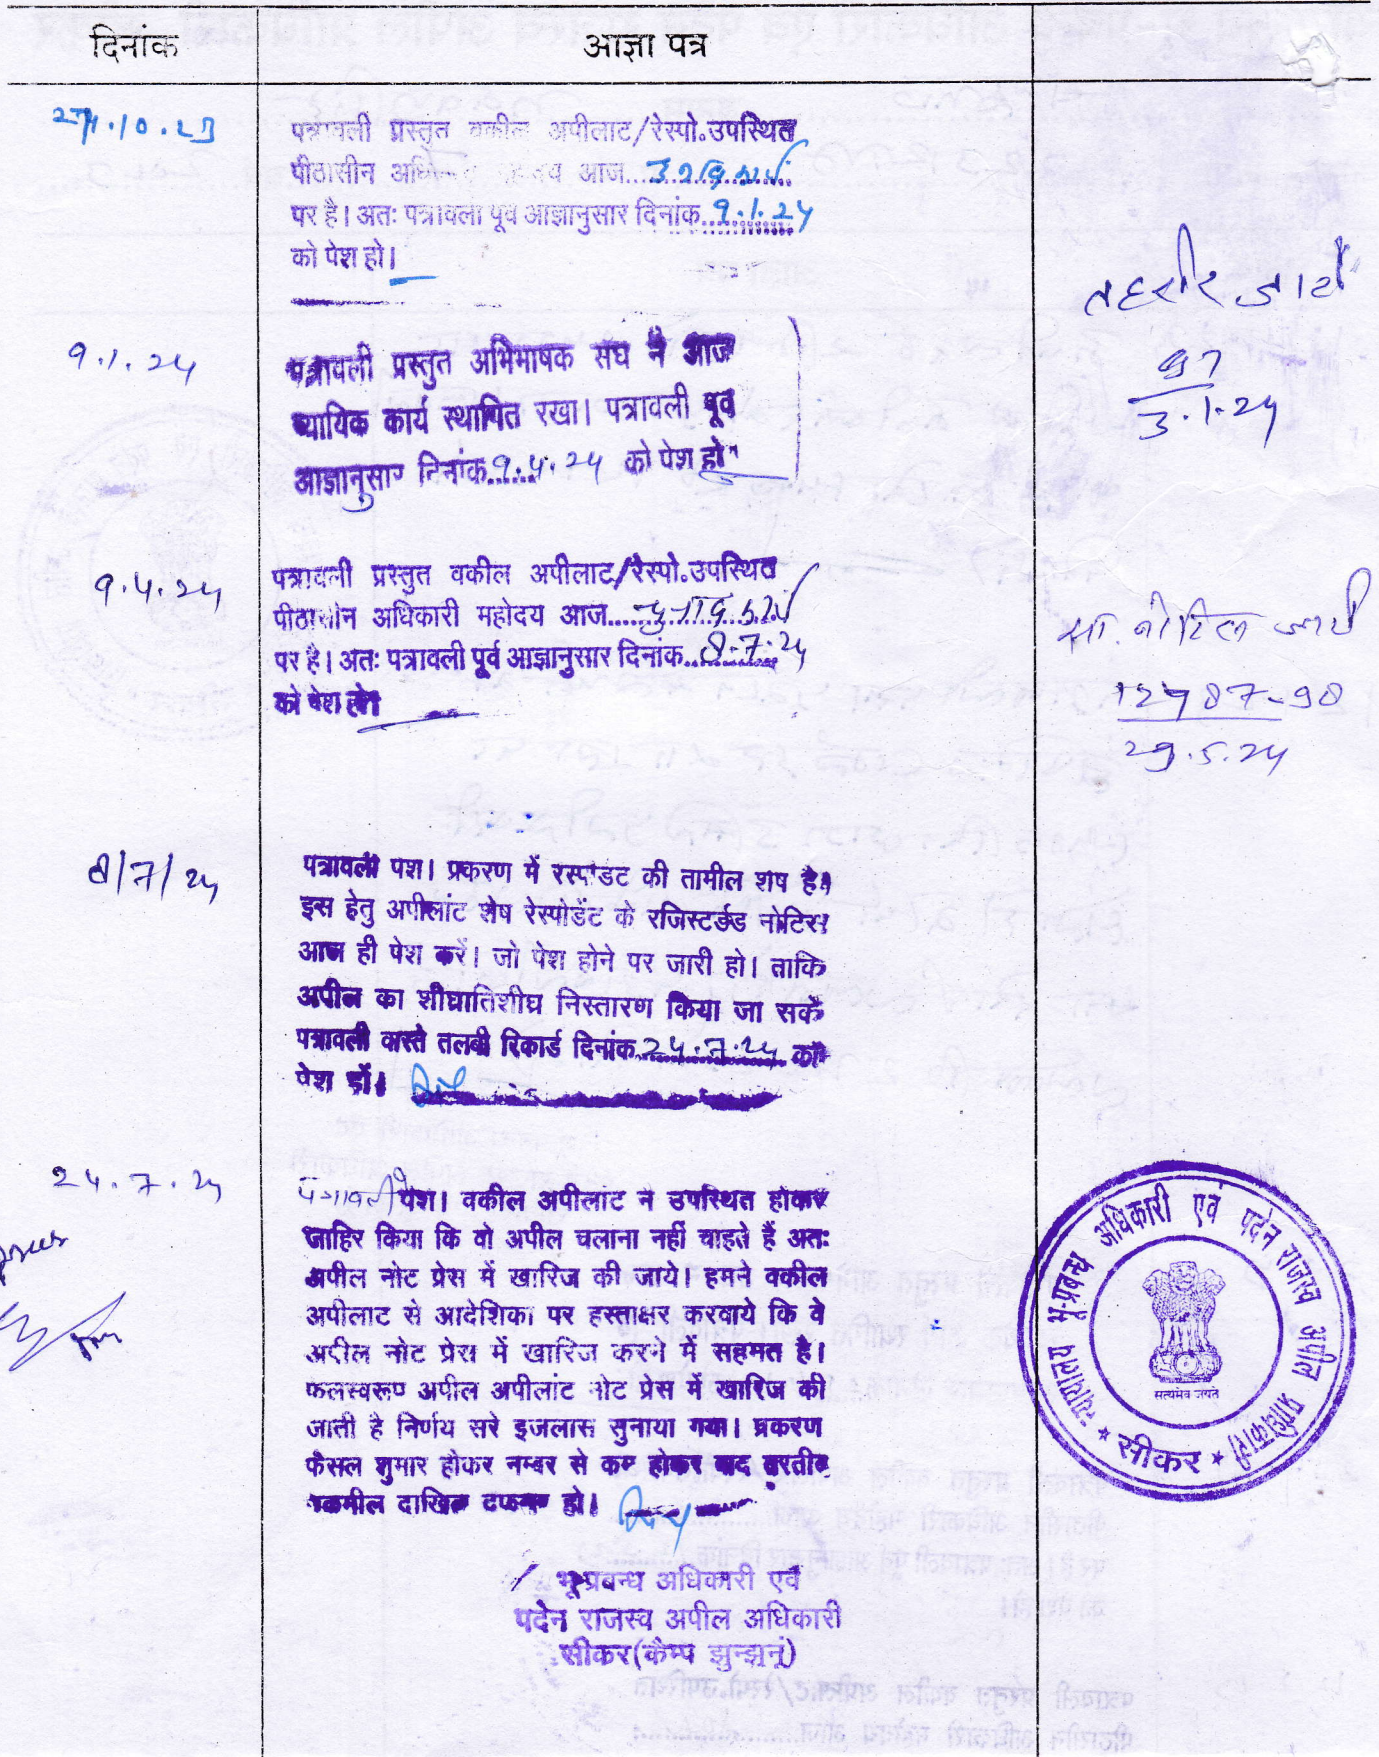 दिनांक
आज्ञा पत्र
पत्रावली प्रस्तुत वकील अपीलाट/रेस्पो.उपस्थित
पीठासीन आज
पर है। अतः पत्रावली पूर्व आज्ञानुसार दिनांक 9.1.24
को पेश हो।
तहरीर जारी
97
3.1.24
9.1.24
पत्रावली प्रस्तुत अभिभाषक संघ ने आज
न्यायिक कार्य स्थागित रखा। पत्रावली पूर्व
आज्ञानुसार दिनांक 9.4.24 को पेश हो
9.4.24
पत्रावली प्रस्तुत वकील अपीलाट/रेस्पो.उपस्थित
पीठासीन अधिकारी महोदय आज
पर है। अतः पत्रावली पूर्व आज्ञानुसार दिनांक 8.7.24
को पेश हो।
नोटिस जारी
29.5.24
8/7/24
पत्रावली पेश। प्रकरण में रेस्पोडेंट की तामील शेष है।
इस हेतु अपीलांट शेष रेस्पोडेंट के रजिस्टर्डड नोटिस
आज ही पेश करें। जो पेश होने पर जारी हो। ताकि
अपील का शीघ्रातिशीघ्र निस्तारण किया जा सके
पत्रावली वास्ते तलबी रिकार्ड दिनांक 24.7.24 को
पेश हों।
24.7.24
पत्रावली पेश। वकील अपीलांट ने उपस्थित होकर
जाहिर किया कि वो अपील चलाना नहीं चाहते हैं अतः
अपील नोट प्रेस में खारिज की जाये। हमने वकील
अपीलाट से आदेशिका पर हस्ताक्षर करवाये कि वे
अपील नोट प्रेस में खारिज करने में सहमत है।
फलस्वरूप अपील अपीलांट नोट प्रेस में खारिज की
जाती है निर्णय सरे इजलास सुनाया गया। प्रकरण
फैसल शुमार होकर नम्बर से कम होकर बाद तरतीब
तकमील दाखिल दफ्तर हो।
भू-प्रबन्ध अधिकारी एवं
पदेन राजस्व अपील अधिकारी
सीकर(कैम्प झुन्झुनूं)
न्यायालय भू-प्रबन्ध अधिकारी एवं पदेन राजस्व अपील प्राधिकारी
सत्यमेव जयते
* सीकर *